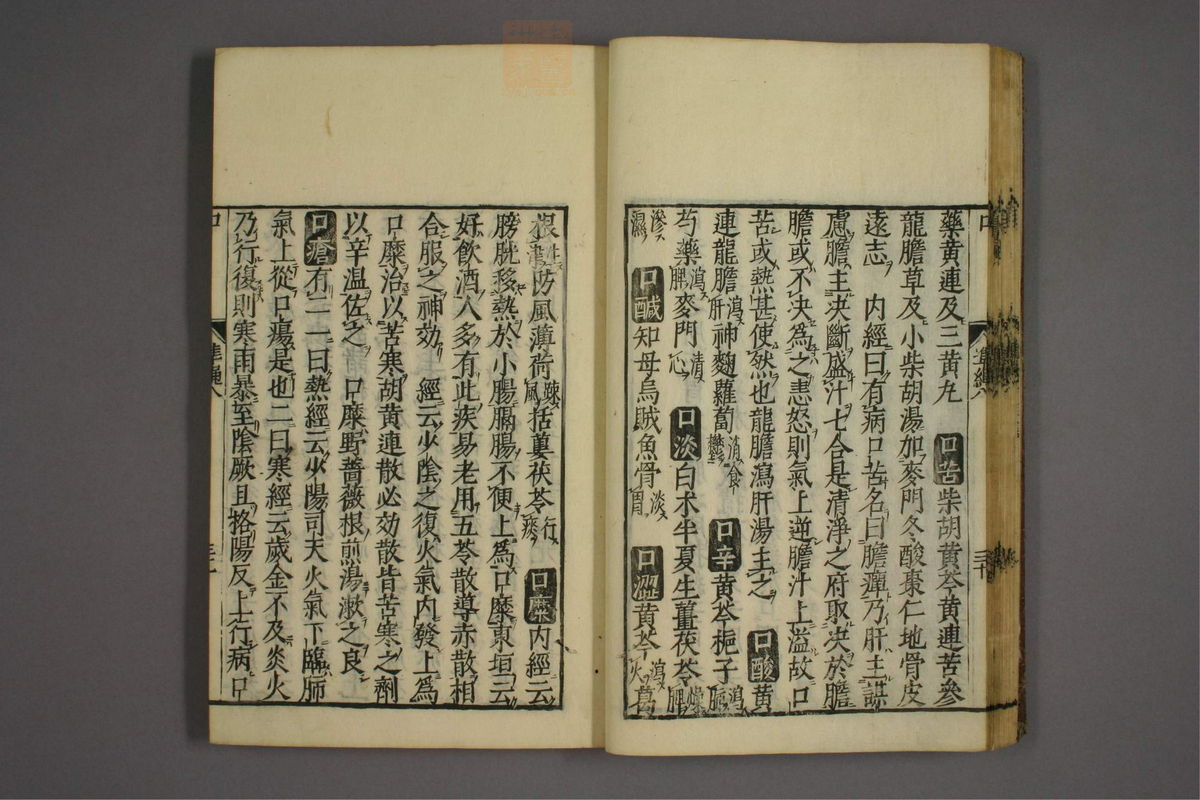 藥黃連及三黃丸 口苦柴胡黃芩黃連苦參
龍膽草及小柴胡湯加麥門冬酸棗仁地骨皮
遠志 內經曰有病口苦名曰膽癉乃肝主謀
慮膽主決斷盛汁七合是清淨之府取決於膽
膽或不決為之恚怒則氣上逆膽汁上溢故口
苦或熱甚使然也龍膽瀉肝湯主之 口酸黃
連龍膽瀉肝神麴蘿蔔消食鬱 口辛黃芩梔子瀉肺
芍藥瀉脾麥門清心 口淡白朮半夏生薑茯苓燥脾
滲濕 口鹹知母烏賊魚骨淡胃 口澀黃芩瀉火葛
根防風薄荷疎風括蔞茯苓行痰 口糜內經云
膀胱移熱於小腸膈腸不便上為口糜東垣云
好飲酒人多有此疾易老用五苓散導赤散相
合服之神効 經云少陰之復火氣內發上為
口糜治以苦寒胡黃連散必効散皆苦寒之劑
以辛温佐之 口糜野薔薇根煎湯漱之良
口瘡有二一曰熱經云少陽司天火氣下臨肺
氣上從口瘍是也二曰寒經云歲金不及炎火
乃行復則寒雨暴至陰厥且格陽反上行病口
準繩八
三十